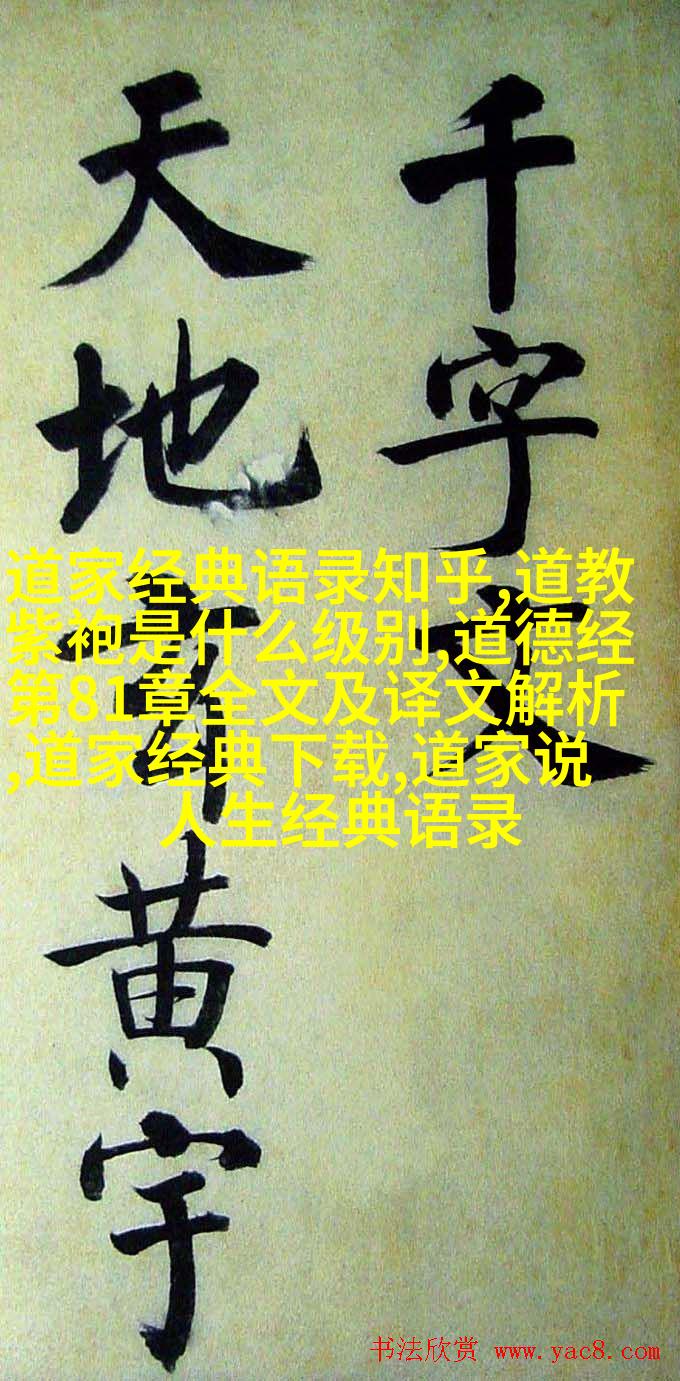 千字文
天地玄黄宇
道家经典语录知乎,道教
紫袍是什么级别,道德经
第81章全文及译文解析
,道家经典下载,道家说
人生经典语录
书法欣赏 www.yac8.com